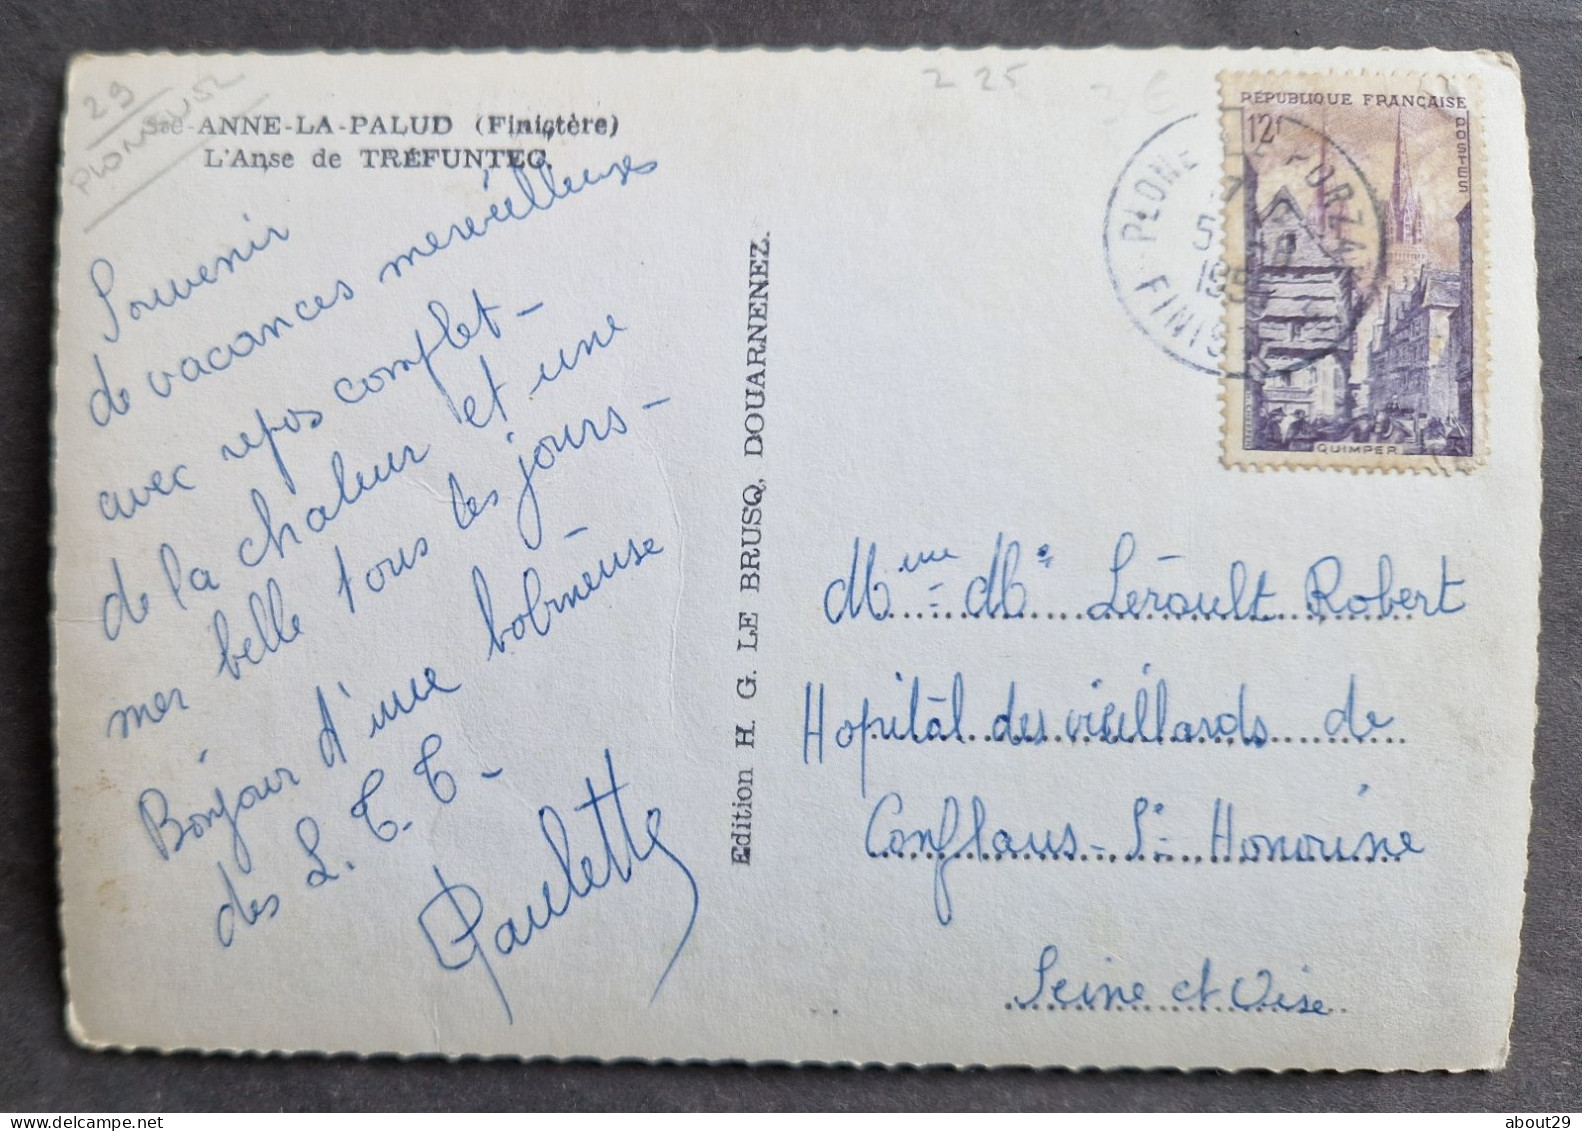 29
PLONEVEZ
2 25
Ste-ANNE-LA-PALUD (Finistère)
L'Anse de TRÉFUNTEC.
Souvenir
de vacances merveilleuses
avec repos complet -
de la chaleur et une
mer belle tous les jours -
Bonjour d'une bobineuse
des L. T. T. -
Paulette
Edition H. G. LE BRUSQ, DOUARNENEZ.
RÉPUBLIQUE FRANÇAISE
POSTES
12f
QUIMPER
PLONE PORZAY
FINIST
Mme - Mr Lérault Robert
Hopitâl des vieillards de
Conflans - St - Honorine
Seine et Oise
about29
about29